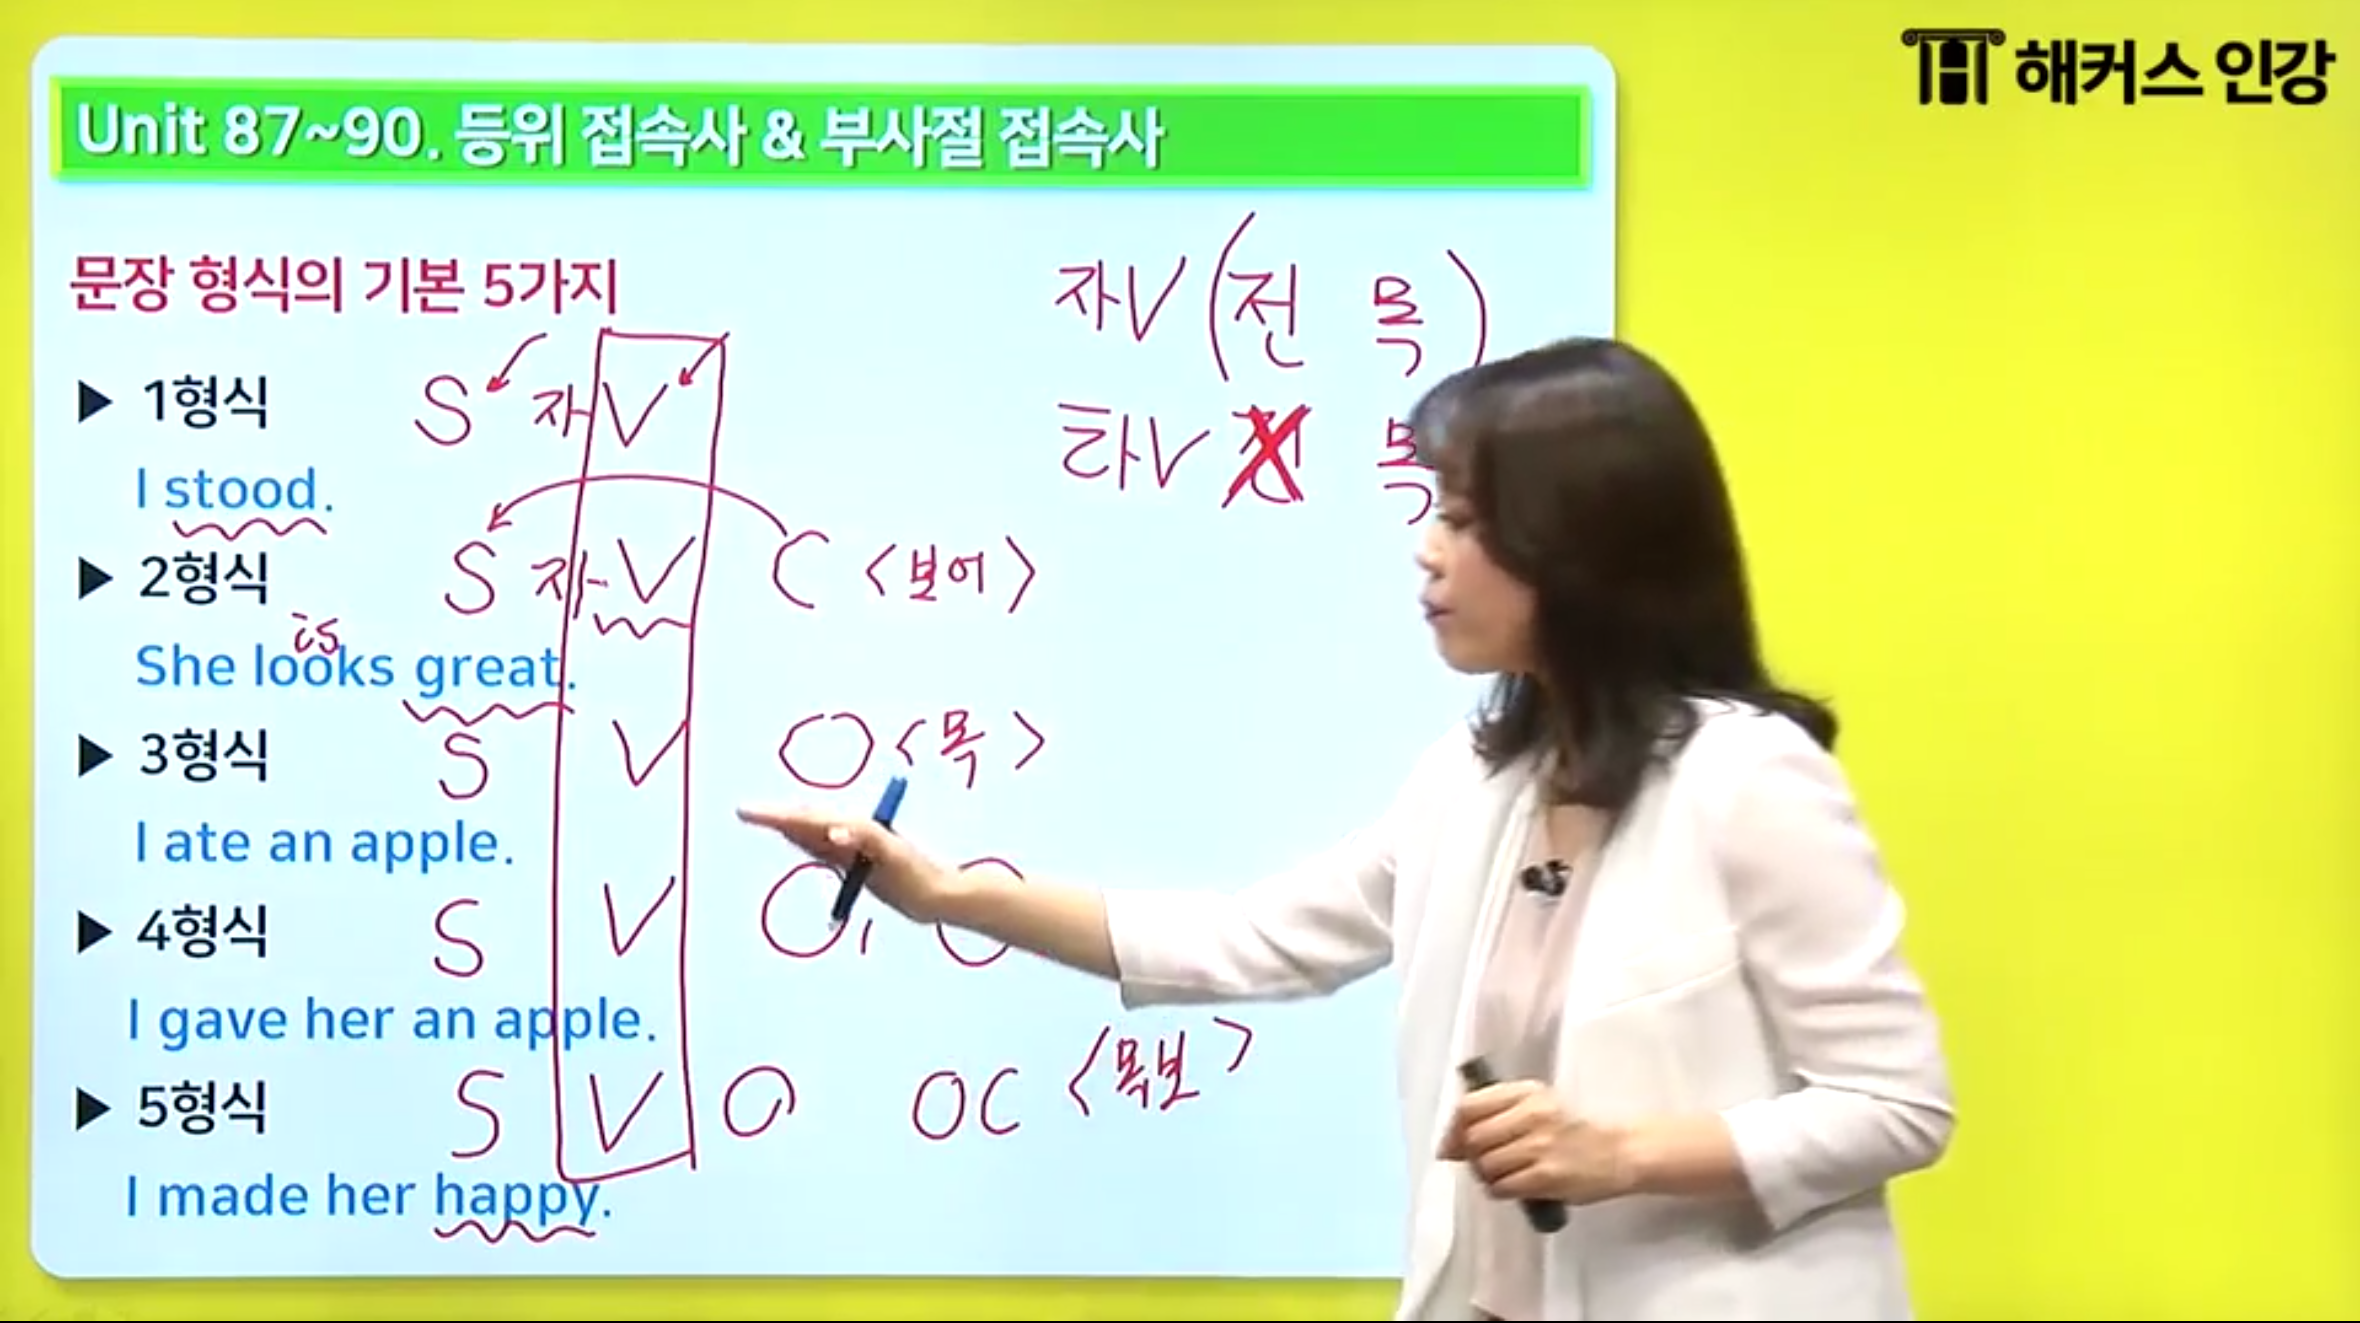 해커스 인강
Unit 87~90. 등위 접속사 & 부사절 접속사
문장 형식의 기본 5가지
자V (전 목)
▶ 1형식 S 자V
타V 전 목
I stood.
▶ 2형식 S 자V C <보어>
is
She looks great.
▶ 3형식 S V O <목>
I ate an apple.
▶ 4형식 S V O, O
I gave her an apple.
▶ 5형식 S V O OC <목보>
I made her happy.